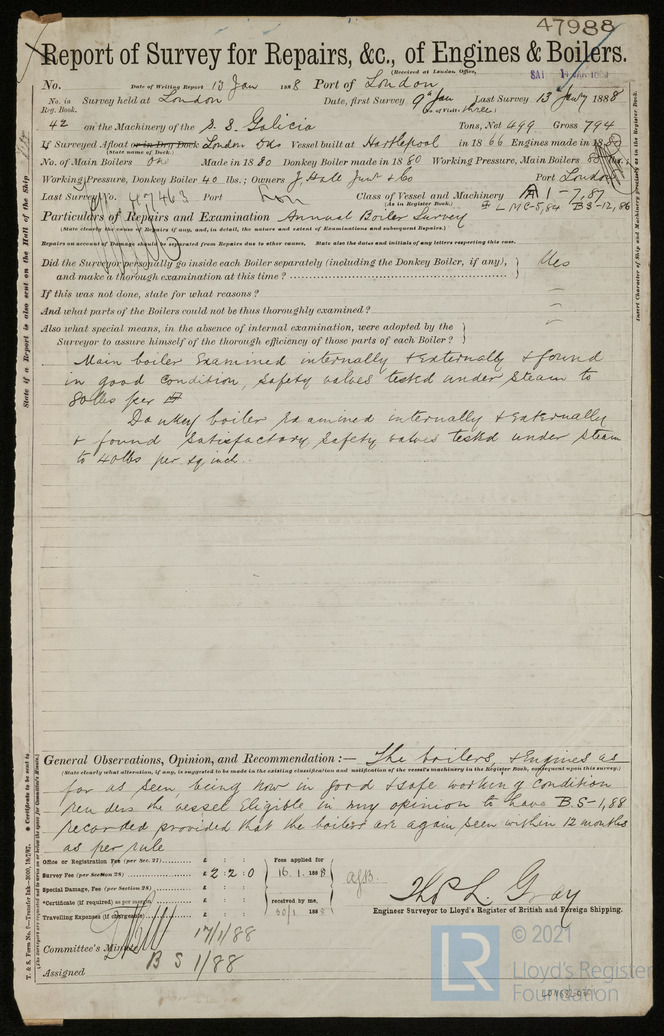 47988
Report of Survey for Repairs, &c., of Engines & Boilers.
(Received at London Office,
No. Date of Writing Report 13 Jan 1888 Port of London
No. in Reg. Book. Survey held at London Date, first Survey 9th Jan Last Survey 13th Jany 1888
(No. of Visits three)
42 on the Machinery of the S. S. Galicia Tons, Net 499 Gross 794
If Surveyed Afloat or in Dry Dock London Dks Vessel built at Hartlepool in 1866 Engines made in 1880
(State name of Dock.)
No. of Main Boilers One Made in 1880 Donkey Boiler made in 1880 Working Pressure, Main Boilers 80 lbs.;
Working Pressure, Donkey Boiler 40 lbs.; Owners J. Hall Junr & Co Port London
Last Survey No. 47463 Port Lon Class of Vessel and Machinery A1-7,87
(As in Register Book.) LMC-5,84 BS-12,86
Particulars of Repairs and Examination Annual Boiler Survey
(State clearly the cause of Repairs if any, and, in detail, the nature and extent of Examinations and subsequent Repairs.)
Repairs on account of Damage should be separated from Repairs due to other causes. State also the dates and initials of any letters respecting this case.
Did the Surveyor personally go inside each Boiler separately (including the Donkey Boiler, if any),
and make a thorough examination at this time? Yes
If this was not done, state for what reasons? —
And what parts of the Boilers could not be thus thoroughly examined? —
Also what special means, in the absence of internal examination, were adopted by the
Surveyor to assure himself of the thorough efficiency of those parts of each Boiler? —
Main boiler Examined internally & Externally & found
in good condition, Safety valves tested under steam to
80 lbs per □"
Donkey boiler examined internally & Externally
& found Satisfactory Safety valves tested under steam
to 40 lbs per sq inch.
General Observations, Opinion, and Recommendation:— The boilers, & Engines as
(State clearly what alteration, if any, is suggested to be made in the existing classification and notification of the vessel's machinery in the Register Book, consequent upon this survey.)
far as seen, being now in good & safe working condition
renders the vessel Eligible in my opinion to have B.S-1,88
recorded provided that the boilers are again seen within 12 months
as per rule
Office or Registration Fee (per Sec. 27) £ : :
Survey Fee (per Section 28) £ 2:2:0
Special Damage, Fee (per Section 28) £ : :
*Certificate (if required) as per margin £ : :
Travelling Expenses (if chargeable) £ : :
Fees applied for
16.1.1888
received by me,
30/1 188
Thos L. Gray
Engineer Surveyor to Lloyd's Register of British and Foreign Shipping.
Committee's Minute 17/1/88
Assigned B S 1/88
State if a Report is also sent on the Hull of the Ship
Insert Character of Ship and Machinery precisely as in the Register Book.
* Certificate to be sent to
T. & S. Form No. 9—Transfer Ink
LR
© 2021
Lloyd's Register
Foundation